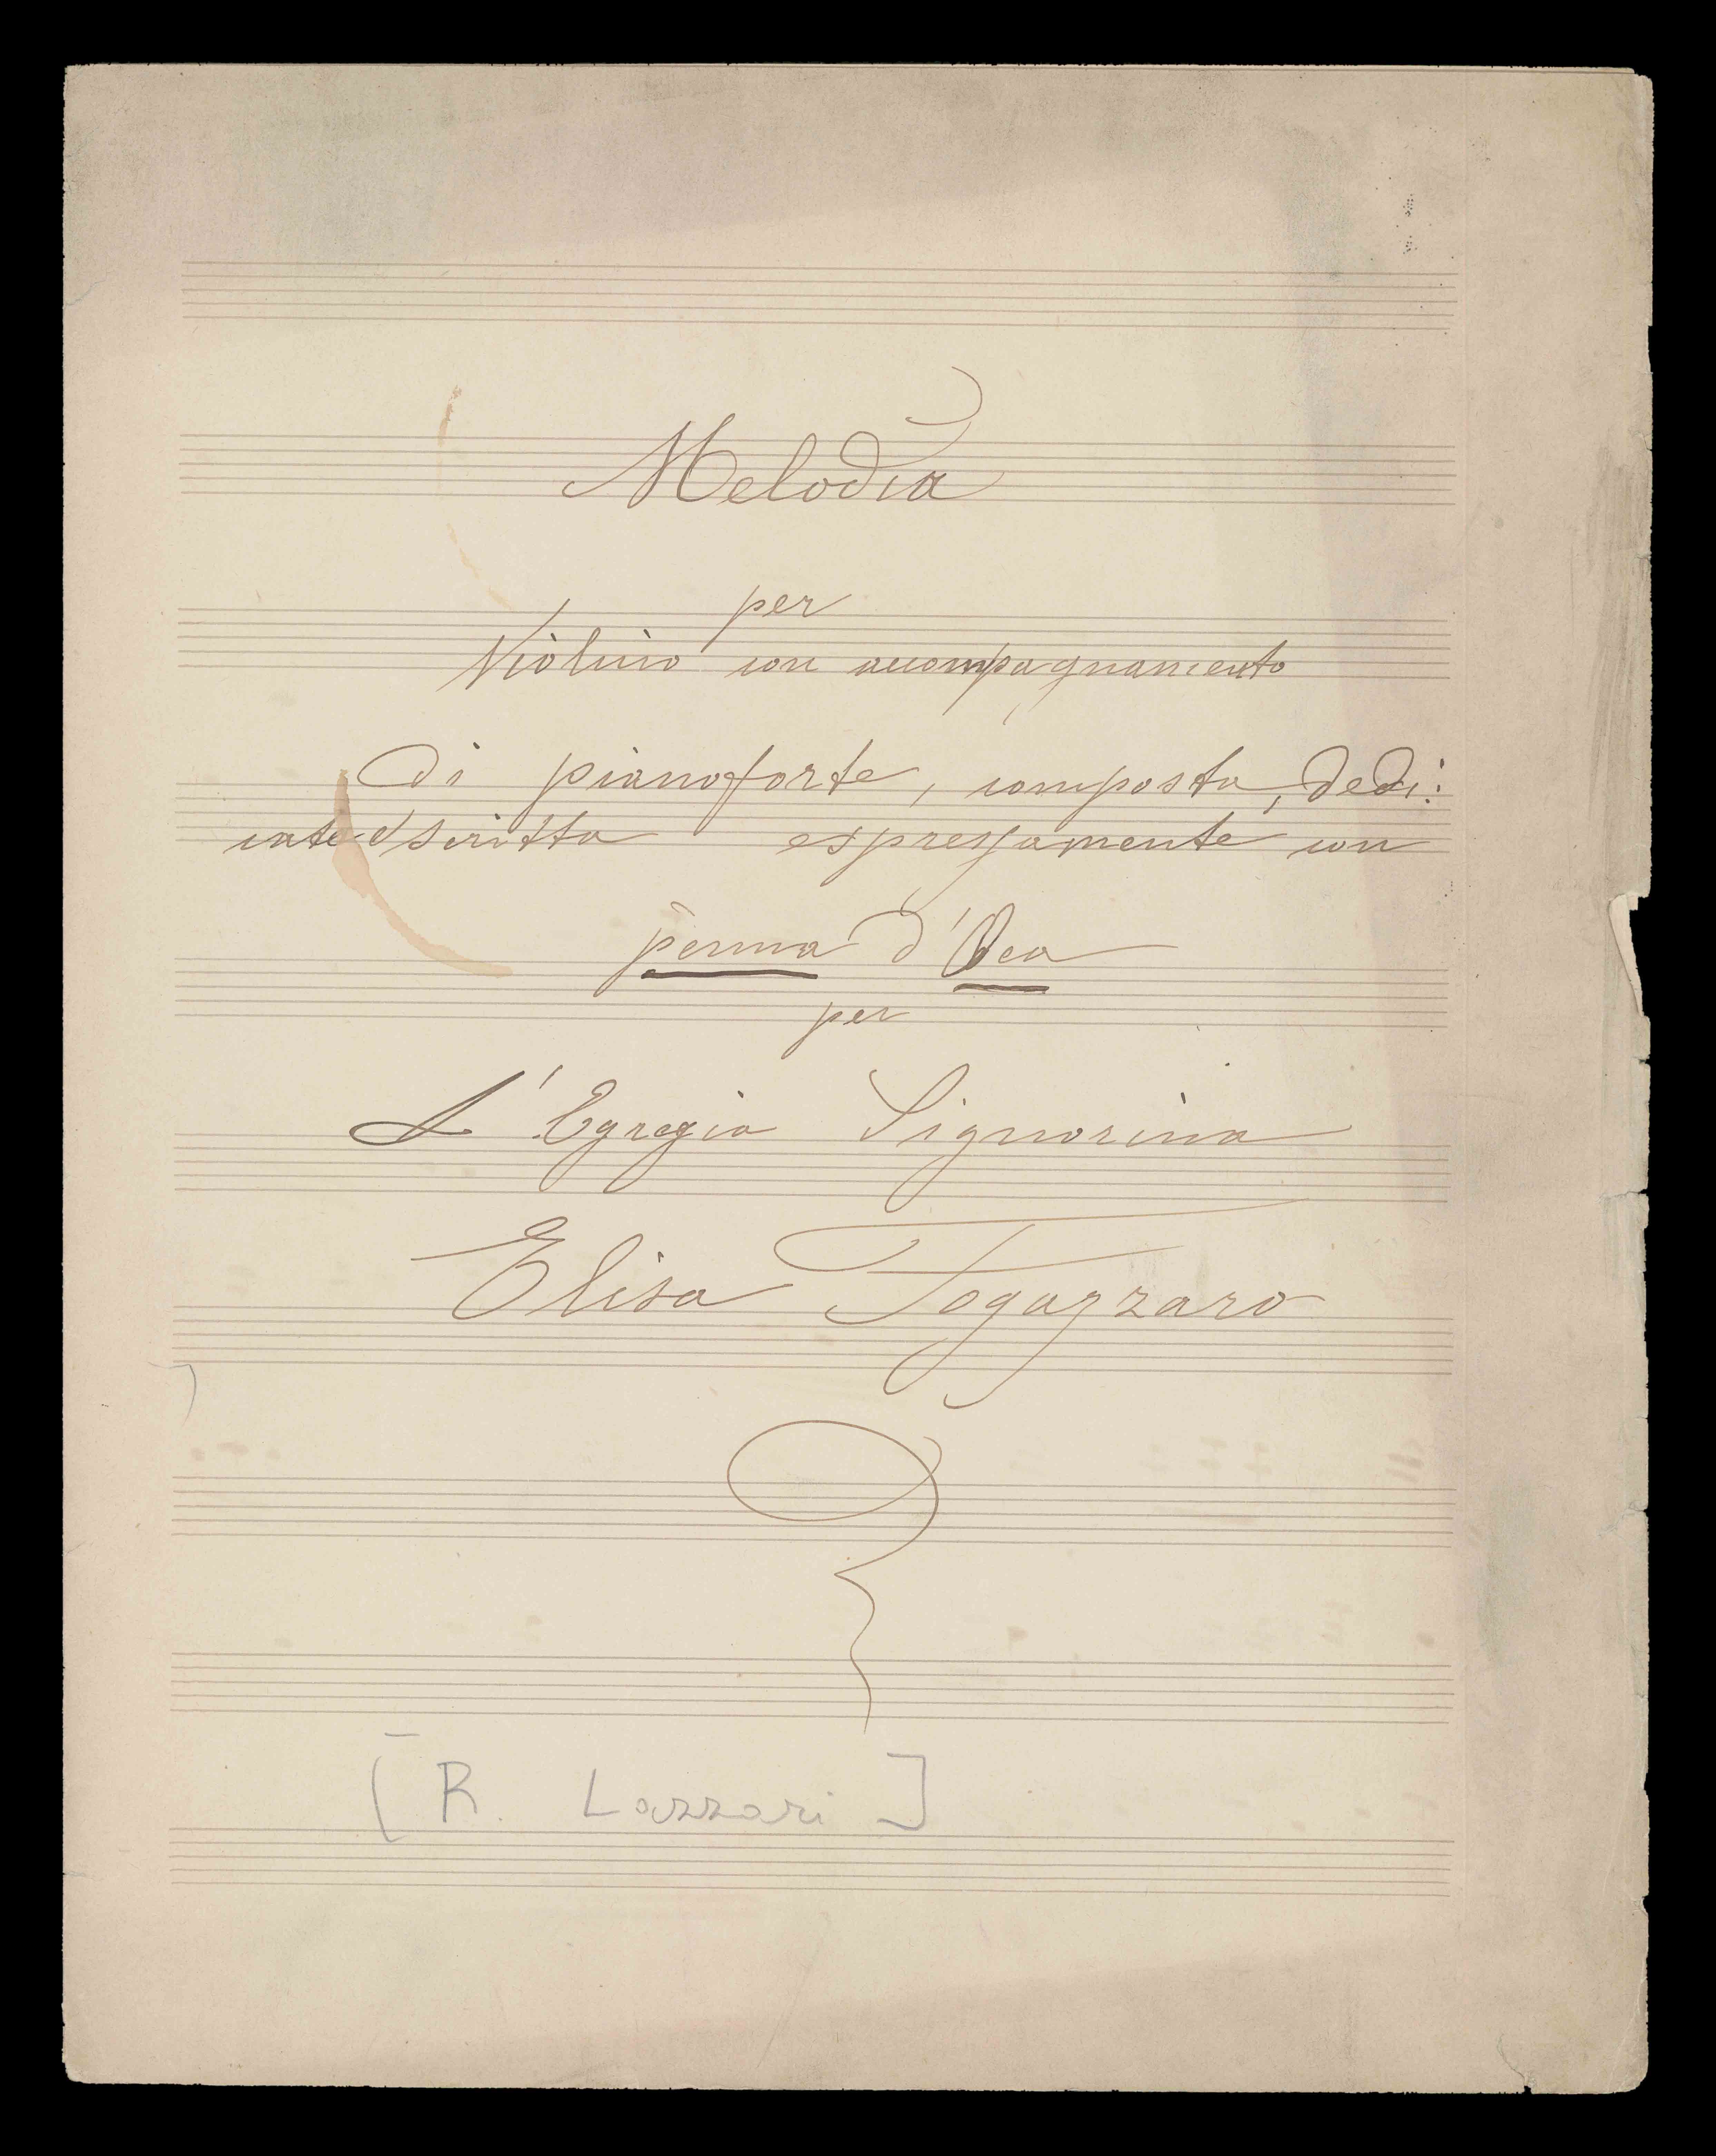 Melodia
per
Violino con accompagnamento
di pianoforte, composta, dedi:
cata e scritta espressamente con
penna d'Oca
per
L'Egregia Signorina
Elisa Fogazzaro
[ R. Lazzari ]